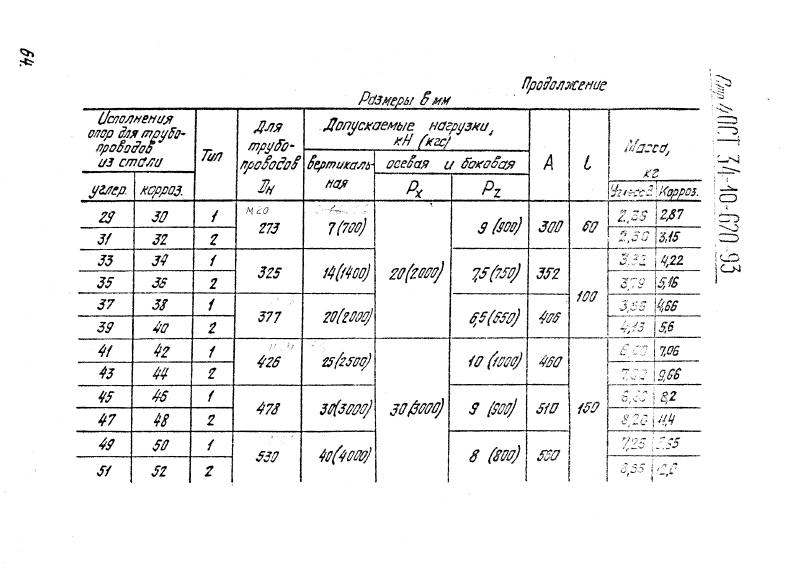 64.
Стр. 4 ОСТ 34-10-620-93
Продолжение
Размеры в мм
Исполнения опор для трубо- проводов из стали | Тип | Для трубо- проводов Dн | Допускаемые нагрузки, кН (кгс) | A | l | Масса, кг
вертикаль- ная | осевая и боковая
углер. | корроз. | Px | Pz | Корроз.
29 30 1 273 7(700) 20(2000) 9 (900) 300 60 2,87
31 32 2 3,15
33 34 1 325 14(1400) 7,5(750) 352 100 4,22
35 36 2 3,79 5,16
37 38 1 377 20(2000) 6,5(650) 406 4,66
39 40 2 5,6
41 42 1 426 25(2500) 30(3000) 10 (1000) 460 150 7,06
43 44 2 9,66
45 46 1 478 30(3000) 9 (900) 510 8,2
47 48 2 8,20 11,4
49 50 1 530 40(4000) 8 (800) 7,25
51 52 2